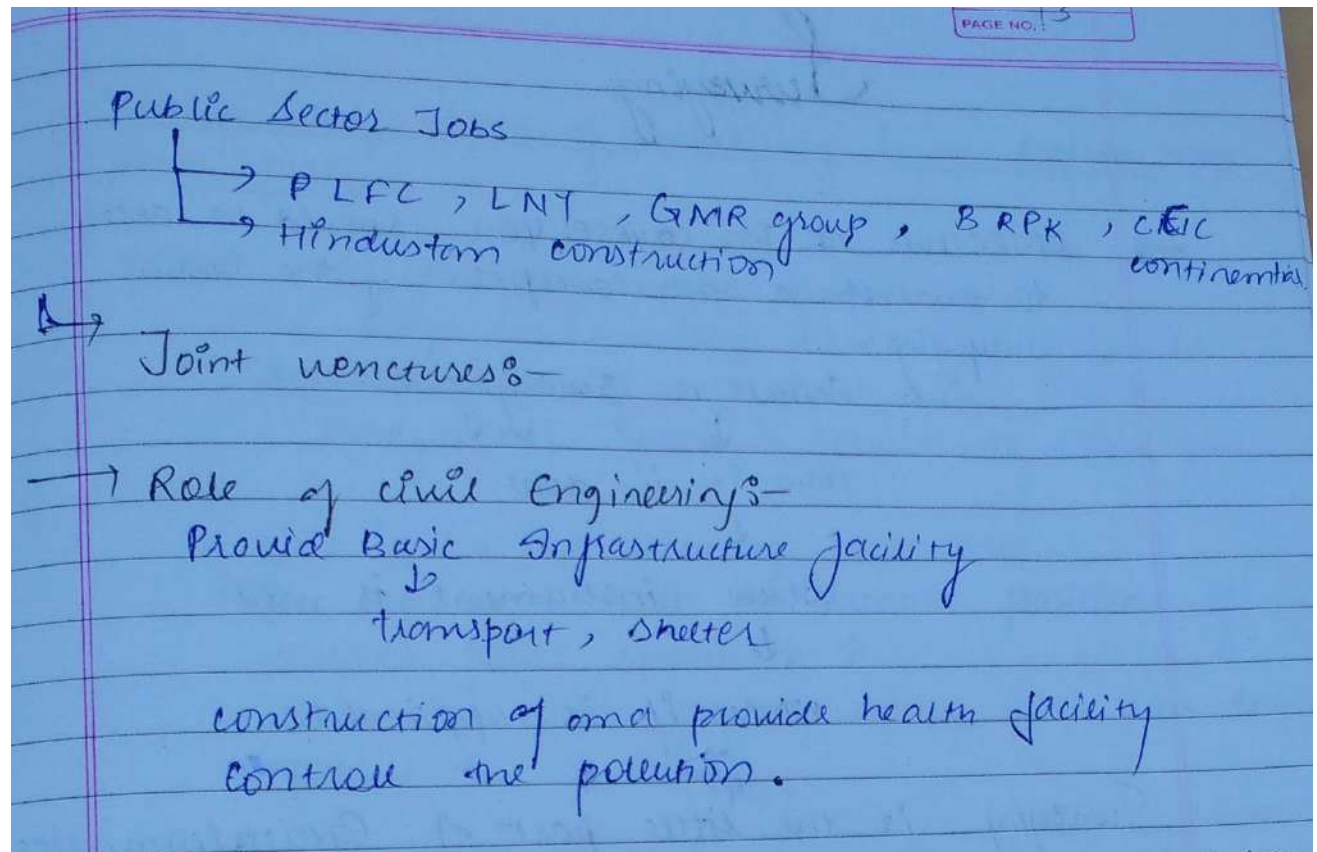 PAGE NO.: 13
Public Sector Jobs
→ PLFC, LNT, GMR group, BRPK, CEIC continential
→ Hindustan construction
Joint venctures:-
→ Role of civil Engineering:-
Provid Basic Infrastructure facility
transport, shelter
construction of and provide health facility
controll the pollution.